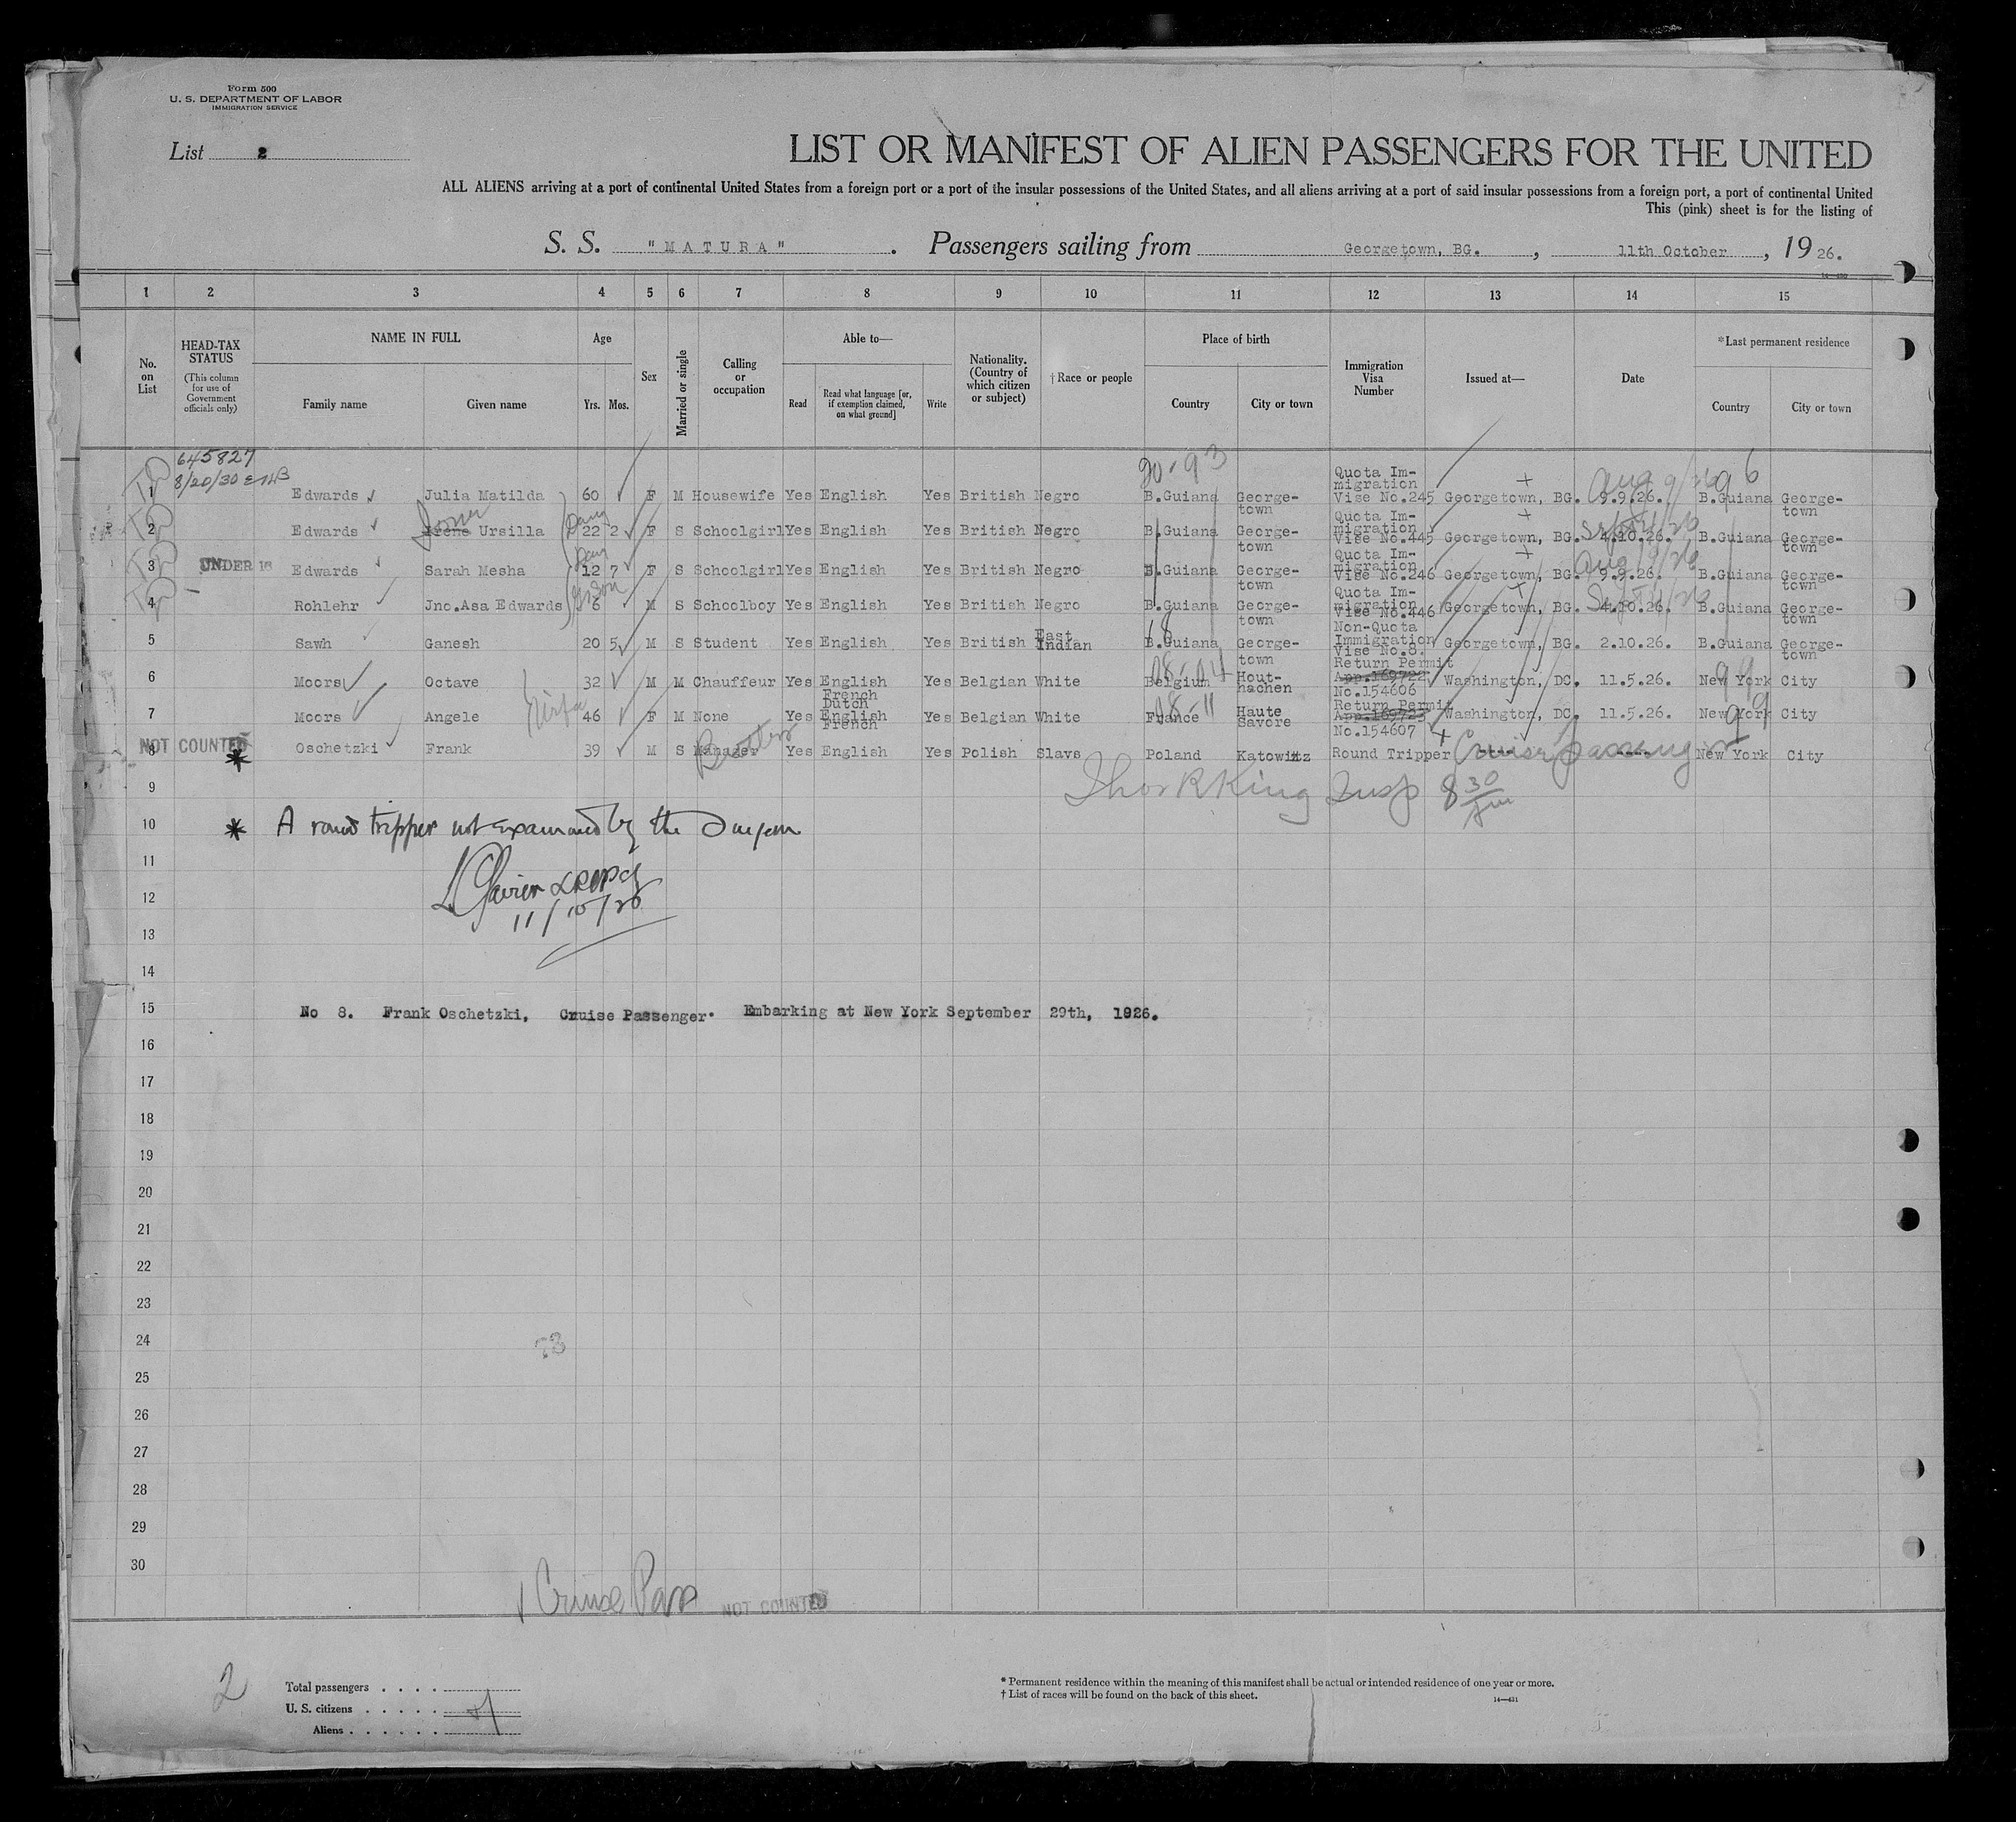 Form 500
U. S. DEPARTMENT OF LABOR
IMMIGRATION SERVICE
List 2
LIST OR MANIFEST OF ALIEN PASSENGERS FOR THE UNITED
ALL ALIENS arriving at a port of continental United States from a foreign port or a port of the insular possessions of the United States, and all aliens arriving at a port of said insular possessions from a foreign port, a port of continental United
This (pink) sheet is for the listing of
S. S. "MATURA". Passengers sailing from Georgetown, BG., 11th October, 1926.
1 2 3 4 5 6 7 8 9 10 11 12 13 14 15
No. on List
HEAD-TAX STATUS (This column for use of Government officials only)
NAME IN FULL Family name Given name
Age Yrs. Mos.
Sex
Married or single
Calling or occupation
Able to— Read Read what language [or, if exemption claimed, on what ground] Write
Nationality. (Country of which citizen or subject)
†Race or people
Place of birth Country City or town
Immigration Visa Number
Issued at—
Date
*Last permanent residence Country City or town
645827
8/20/30
20-93
96
1 Edwards Julia Matilda 60 F M Housewife Yes English Yes British Negro B.Guiana George-town Quota Im-migration Vise No.245 Georgetown, BG. 9.9.26. Aug 9/26 B.Guiana George-town
2 Edwards Irene Ursilla Dau 22 2 F S Schoolgirl Yes English Yes British Negro B.Guiana George-town Quota Im-migration Vise No.445 Georgetown, BG. 4.10.26. B.Guiana George-town
3 UNDER 16 Edwards Sarah Mesha Dau 12 7 F S Schoolgirl Yes English Yes British Negro B.Guiana George-town Quota Im-migration Vise No.246 Georgetown, BG. 9.9.26. B.Guiana George-town
4 Rohlehr Jno.Asa Edwards G Son 6 M S Schoolboy Yes English Yes British Negro B.Guiana George-town Quota Im-migration Vise No.446 Georgetown, BG. 4.10.26. B.Guiana George-town
5 Sawh Ganesh 20 5 M S Student Yes English Yes British East Indian B.Guiana George-town Non-Quota Immigration Vise No.8. Georgetown, BG. 2.10.26. B.Guiana George-town
6 Moors Octave 32 M M Chauffeur Yes English French Dutch Yes Belgian White Belgium Hout-hachen Return Permit App.169722 No.154606 Washington, DC. 11.5.26. New York City
7 Moors Angele 46 F M None Yes English French Yes Belgian White France Haute Savore Return Permit App.169723 No.154607 Washington, DC. 11.5.26. New York City
NOT COUNTED
8 * Oschetzki Frank 39 M S Manager Yes English Yes Polish Slavs Poland Katowitz Round Tripper Cruise Passenger New York City
9 Thos R King Insp 8 30
10 * A round tripper not examined by the Surgeon
11
12
11/10/26
13
14
15 No 8. Frank Oschetzki, Cruise Passenger. Embarking at New York September 29th, 1926.
16
17
18
19
20
21
22
23
24
73
25
26
27
28
29
30
1 Cruise Pass NOT COUNTED
2
Total passengers
U. S. citizens
Aliens
* Permanent residence within the meaning of this manifest shall be actual or intended residence of one year or more.
† List of races will be found on the back of this sheet.
14—431